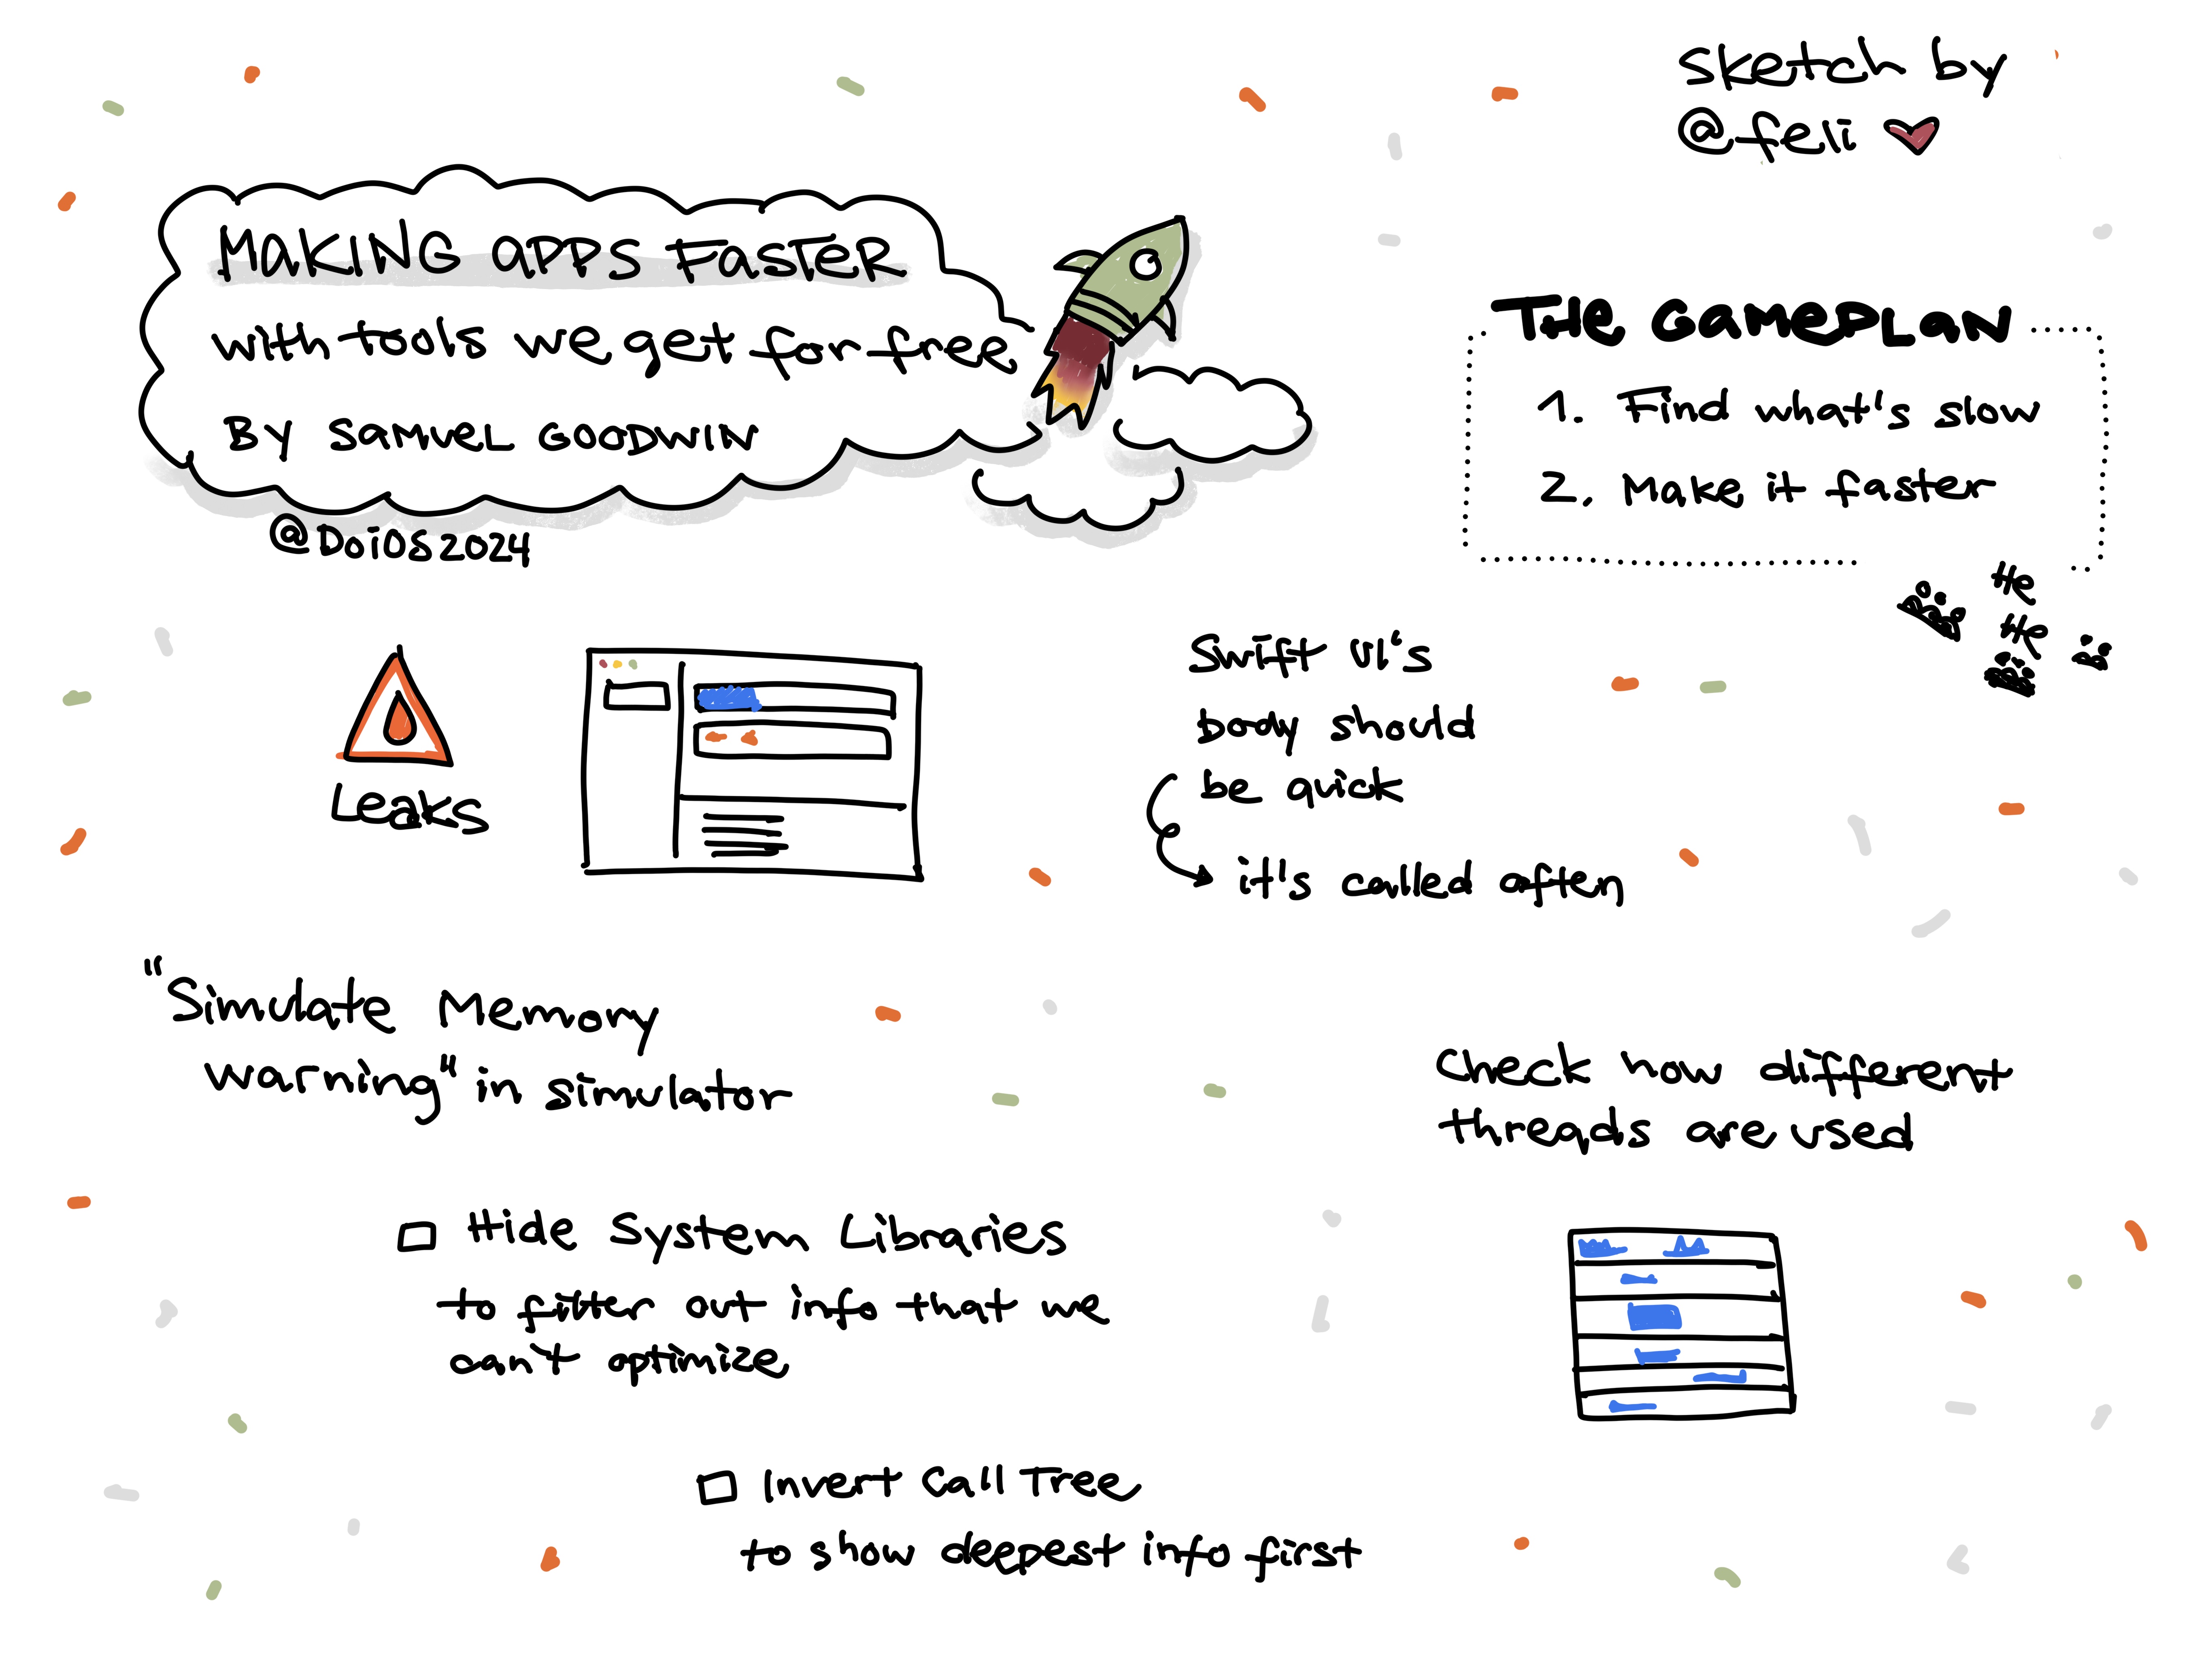 Sketch by
@feli
MAKING APPS FASTER
with tools we get for free
BY SAMUEL GOODWIN
@DoiOS2024
THE GAMEPLAN
1. Find what's slow
2. Make it faster
He
He
Leaks
Swift UI's
body should
be quick
it's called often
"Simulate Memory
warning" in simulator
Check how different
threads are used
Hide System Libraries
to filter out info that we
can't optimize
Invert Call Tree
to show deepest info first